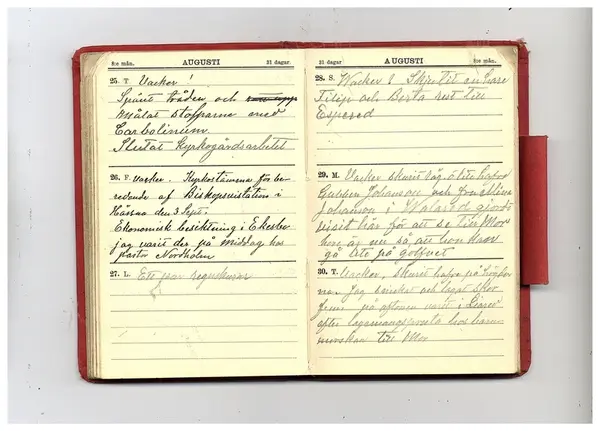 8:e mån. AUGUSTI 31 dagar.
25. T Vacker!
Spänt tråden och
målat stolparne med
Carbolineum.
Slutat kyrkogårdsarbetet
26. F. Vacker. Kyrkostämma för be-
redande af Biskopsvisitation i
Kåssna den 3 Sept.
Ekonomisk besiktning i Ekesbo
jag varit der på middag hos
pastor Nordholm
27. L. Ett par regnskurar
8:e mån. AUGUSTI 31 dagar.
28. S. Vacker
Filip och Berta rest till
Espered
29. M. Vacker skurit råg o lite hafre
Gubben Johanson och fru Elina
Johanson i Halared gjorde
visit här för att se till Mor
hon är nu så att hon kan
gå lite på golfvet
30. T. Vacker, skurit hafre på
ne. Jag och lagat skor
på aftonen varit i
efter hos barn-
morskan till Mor